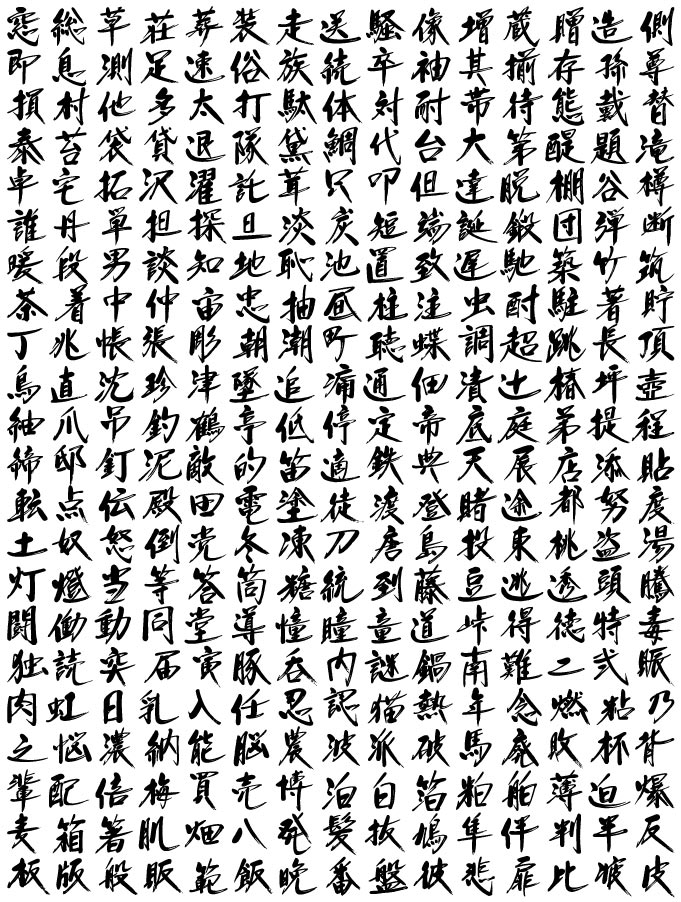 窓総草荘葬装走送騒像増蔵贈造側
即息測足速俗族続卒袖其揃存孫尊
損村他多太打駄体対耐帯待態戴替
泰苔袋貸退隊黛鯛代台大第醍題滝
卓宅拓沢濯託茸只叩但達脱棚谷樽
誰丹単担探旦淡炭短端誕鍛団弾断
暖段男談知地恥池置致遅馳築竹筑
茶着中仲宙忠抽昼柱注虫酎駐著貯
丁兆帳張彫朝潮町聴蝶調超跳長頂
鳥直沈珍津墜追痛通佃漬辻椿坪壺
紬爪吊釣鶴亭低停定帝底庭弟提程
締邸釘泥敵的笛適鉄典天展店添貼
転点伝殿田電塗徒渡登賭途都努度
土奴怒倒党冬凍刀唐島投東桃盗湯
灯燈当等答筒糖統到藤豆逃透頭騰
闘働動同堂導憧瞳童道峠得徳特毒
独読突届寅豚呑内謎鍋南難二弐賑
肉虹日乳入任忍認猫熱年念燃粘乃
之悩濃納能脳農波派破馬廃敗杯背
輩配倍梅買売博泊白箔粕舶薄迫爆
麦箱箸肌畑八発髪抜鳩隼伴判半反
板版般販範飯晩番盤彼悲扉比疲皮